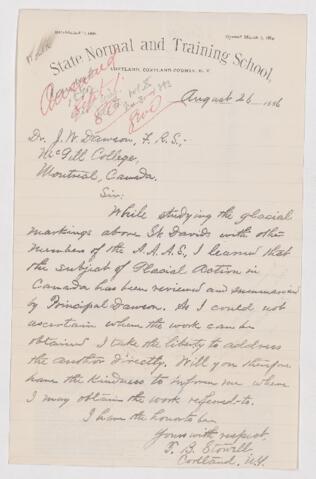 State Normal and Training School,
CORTLAND, CORTLAND COUNTY, N. Y.
August 26, 1886
Answered
Sept
Dr. J. W. Dawson, F. R. S.;
McGill College,
Montreal, Canada.
Sir;
While studying the glacial
markings above St. Davids with other
members of the A. A. A. S., I learned that
the subject of Glacial Action in
Canada has been reviewed and summarized
by Principal Dawson. As I could not
ascertain where the work can be
obtained I take the liberty to address
the author directly. Will you therefore
have the kindness to inform me where
I may obtain the work referred-to.
I have the honor to be,
Yours with respect,
T. B. Stowell,
Cortland, N.Y.